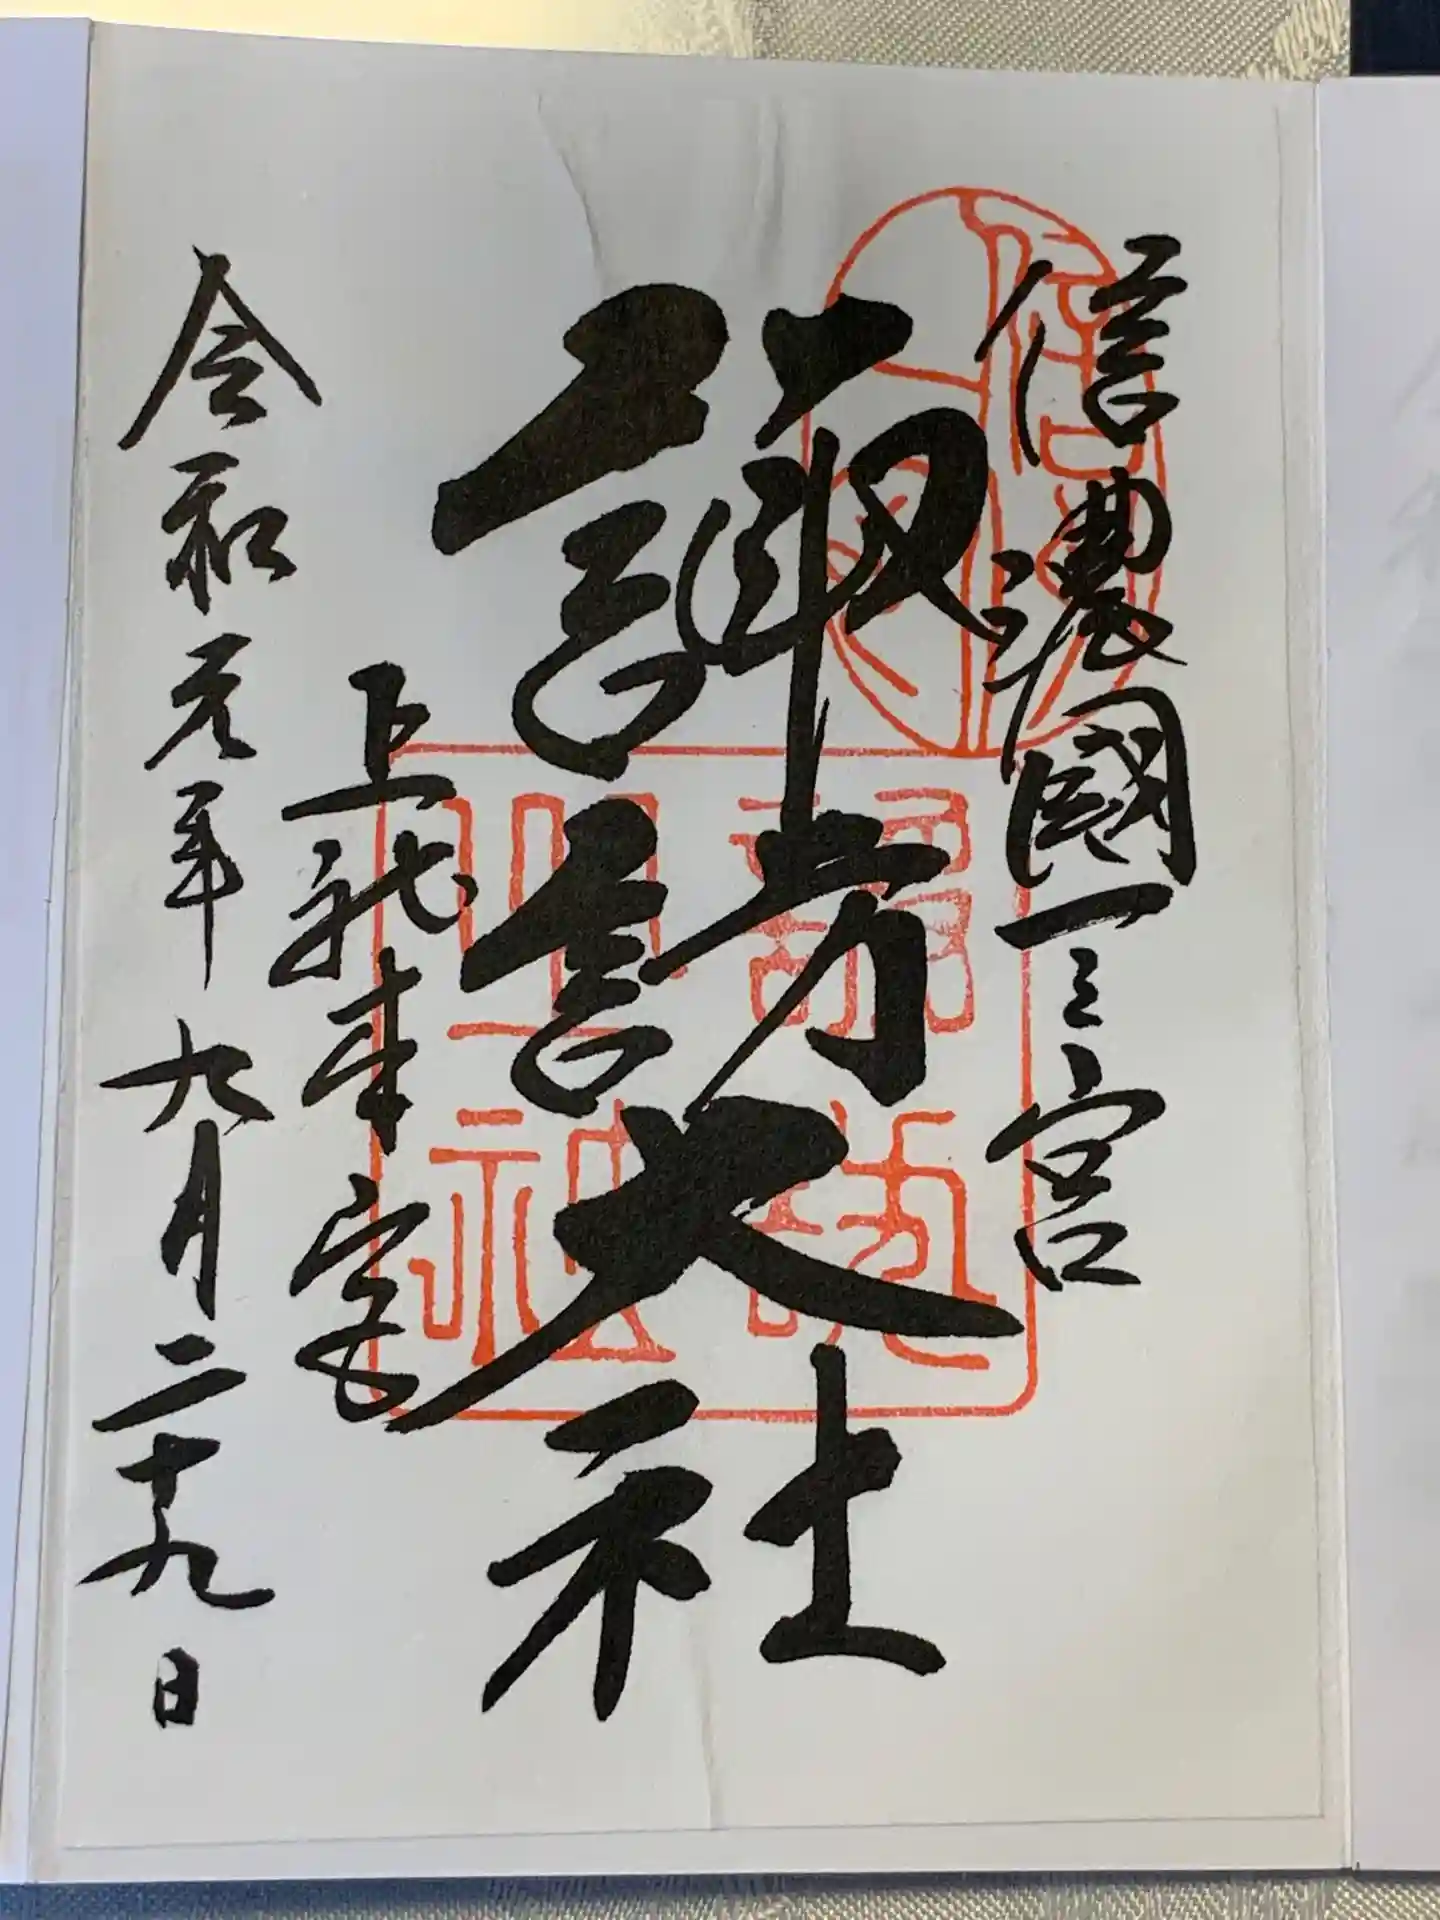 信濃國一之宮
諏訪大社
上社本宮
令和元年九月二十九日